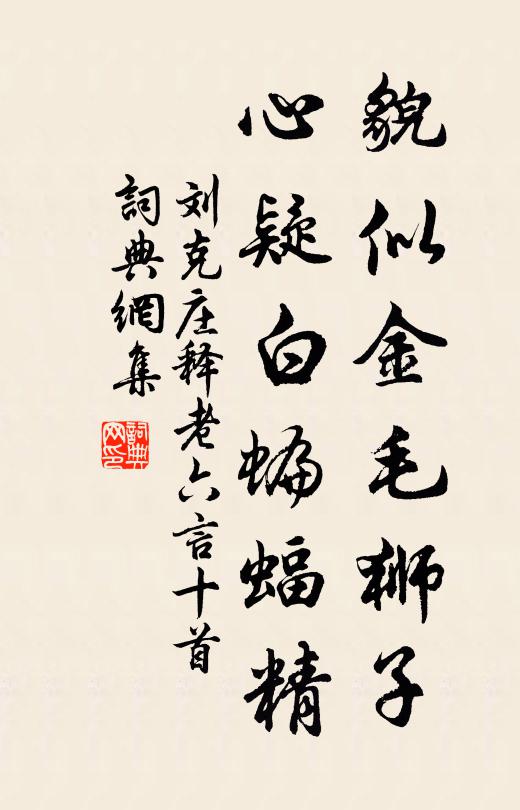 貌似金毛狮子
心疑白蝙蝠精
刘克庄释老六言十首
詞典網集
詞典
网印